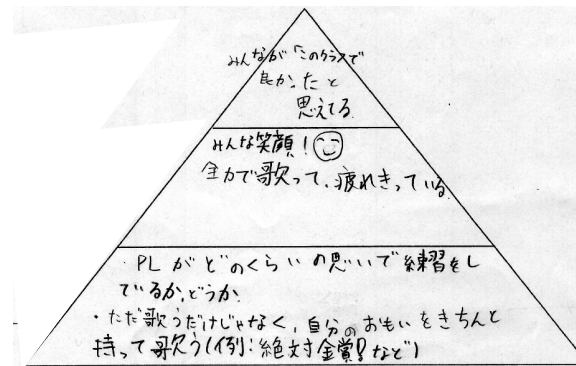 みんなが「このクラスで
良かったと
思えてる
みんな笑顔！
全力で歌って、疲れきっている
・PLがどのくらいの思いで練習をし
ているか、どうか
・ただ歌うだけじゃなく、自分のおもいをきちんと
持って歌う(例:絶対金賞!など)